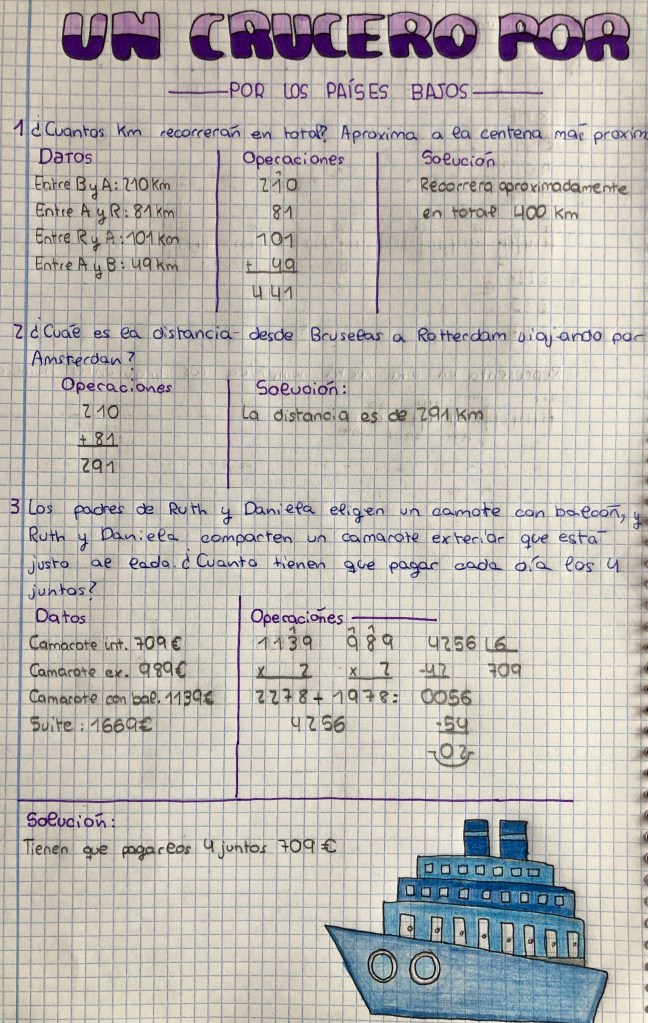 UN CRUCERO POR
POR LOS PAÍSES BAJOS
1 ¿Cuantos Km recorrerán en total? Aproxima a la centena más proxim
Datos
Operaciones
Solución
Entre B y A: 210 Km
210
Recorrera aproximadamente
Entre A y R: 81 Km
81
en total 400 Km
Entre R y A: 101 Km
101
Entre A y B: 49 Km
+ 49
441
2 ¿Cuál es la distancia desde Bruselas a Rotterdam viajando por
Amsterdan?
Operaciones
Solución:
210
La distancia es de 291 Km
+ 81
291
3 Los padres de Ruth y Daniela eligen un camote con balcón, y
Ruth y Daniela comparten un camarote exterior que está
justo al lado. ¿Cuanto tienen que pagar cada día los 4
juntos?
Datos
Operaciones
Camarote int. 709€
1139 989 4256 6
Camarote ex. 989€
x 2 x 2 -42 709
Camarote con bal. 1139€
2278 + 1978 = 0056
Suite: 1669€
4256 -54
-02-
Solución:
Tienen que pagar los 4 juntos 709€